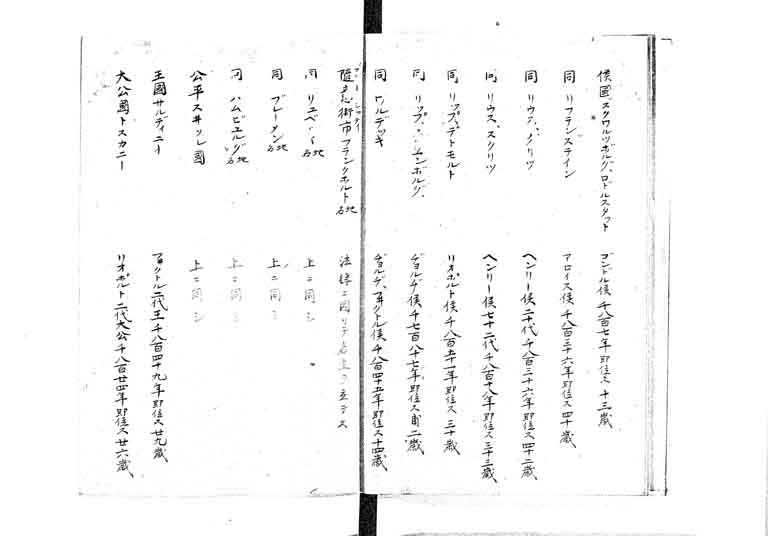 侯國 スクワルツボルグ、ロドルスタット ゴンドル侯 千八百七年即位ス 十三歳
同 リフテンステイン アロイス侯 千八百三十六年即位ス 四十歳
同 リウス、グリツ ヘンリー侯 二十代 千八百三十六年即位ス 四十二歳
同 リウス、スクリツ ヘンリー侯 七十二代 千八百十八年即位ス 三十三歳
同 リップ、デトモルト リオポルト侯 千八百五十一年即位ス 三十歳
同 リップ、 エンボルグ、 ヂョルヂ侯 千七百八十七年即位ス 二歳
同 ワルデッキ ヂョルヂ、 クトル侯 千八百四十五年即位ス 十四歳
街市 フランクホルト 地名 法 ニ因リテ 上ヲ
同 リユベ 地名 上ニ同シ
同 ブレーメン 地名 上ニ同シ
同 ハムビユルグ 地名 上ニ同シ
公平スヰツレ國 上ニ同シ
王國サルディニー クトル二代王 千八百四十九年即位ス 廿九歳
大公國トスカニー リオポルト二代大公 千八百廿四年即位ス 廿六歳